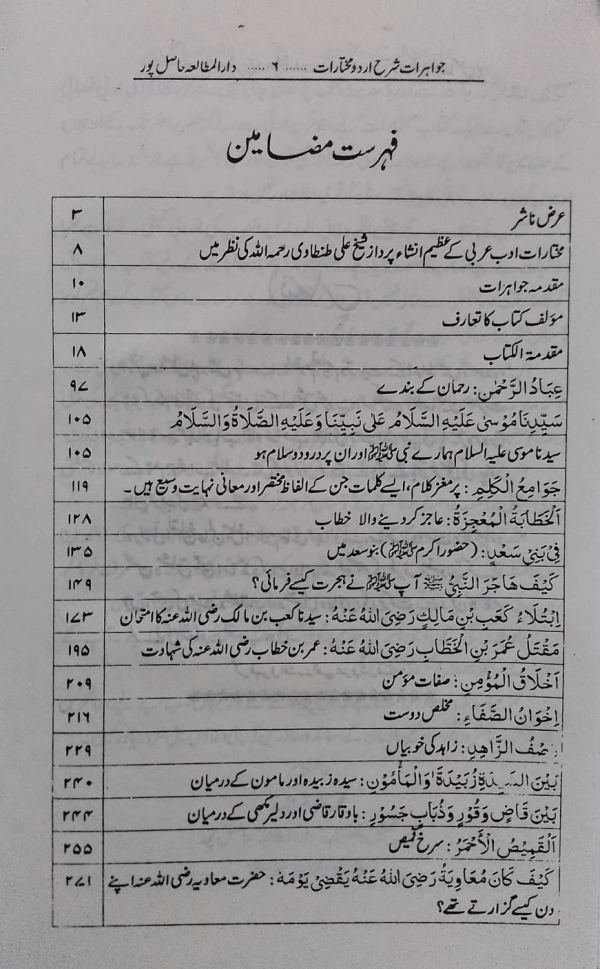 جواہرات شرح اردو مختارات ...... ۶ ...... دارالمطالعہ حاصل پور
فہرست مضامین
عرض ناشر ۳
مختارات ادب عربی کے عظیم انشاء پرداز شیخ علی طنطاوی رحمہ اللہ کی نظر میں ۸
مقدمہ جواہرات ۱۰
مؤلف کتاب کا تعارف ۱۳
مقدمۃ الکتاب ۱۸
عِبَادُ الرَّحْمٰن: رحمان کے بندے ۹۷
سَیِّدِنَا مُوْسٰی عَلَیْہِ السَّلَامُ عَلٰی نَبِیِّنَا وَعَلَیْہِ الصَّلَاۃُ وَالسَّلَامُ ۱۰۵
سیدنا موسی علیہ السلام ہمارے نبی ﷺ اور ان پر درود و سلام ہو ۱۰۵
جَوَامِعُ الْکَلِمِ: پر مغز کلام، ایسے کلمات جن کے الفاظ مختصر اور معانی نہایت وسیع ہیں۔ ۱۱۹
اَلْخَطَابَۃُ الْمُعْجِزَۃُ: عاجز کر دینے والا خطاب ۱۲۸
فِیْ بَنِیْ سَعْدٍ: (حضور اکرم ﷺ) بنو سعد میں ۱۳۵
کَیْفَ هَاجَرَ النَّبِیُّ ﷺ آپ ﷺ نے ہجرت کیسے فرمائی؟ ۱۴۹
اِبْتِلَاءُ کَعَبِ بْنِ مَالِکٍ رَضِیَ اللّٰہُ عَنْہُ: سیدنا کعب بن مالک رضی اللہ عنہ کا امتحان ۱۷۳
مَقْتَلُ عُمَرَ بْنِ الْخَطَّابِ رَضِیَ اللّٰہُ عَنْہُ: عمر بن خطاب رضی اللہ عنہ کی شہادت ۱۹۵
اَخْلَاقُ الْمُؤْمِنِ: صفات مؤمن ۲۰۹
اِخْوَانُ الصَّفَاءِ: مخلص دوست ۲۱۶
وَصْفُ الزَّاهِدِ: زاہد کی خوبیاں ۲۲۹
بَیْنَ السَّیِّدَۃِ زُبَیْدَۃَ وَالْمَأْمُوْنِ: سیدہ زبیدہ اور مامون کے درمیان ۲۴۰
بَیْنَ قَاضٍ وَقُوْرٍ وَذُبَابٍ جَسُوْرٍ: باوقار قاضی اور دلیر مکھی کے درمیان ۲۴۴
اَلْقَمِیْصُ الْأَحْمَرُ: سرخ قمیص ۲۵۵
کَیْفَ کَانَ مُعَاوِیَۃُ رَضِیَ اللّٰہُ عَنْہُ یَقْضِیْ یَوْمَہٗ: حضرت معاویہ رضی اللہ عنہ اپنے ۲۷۱
دن کیسے گزارتے تھے؟